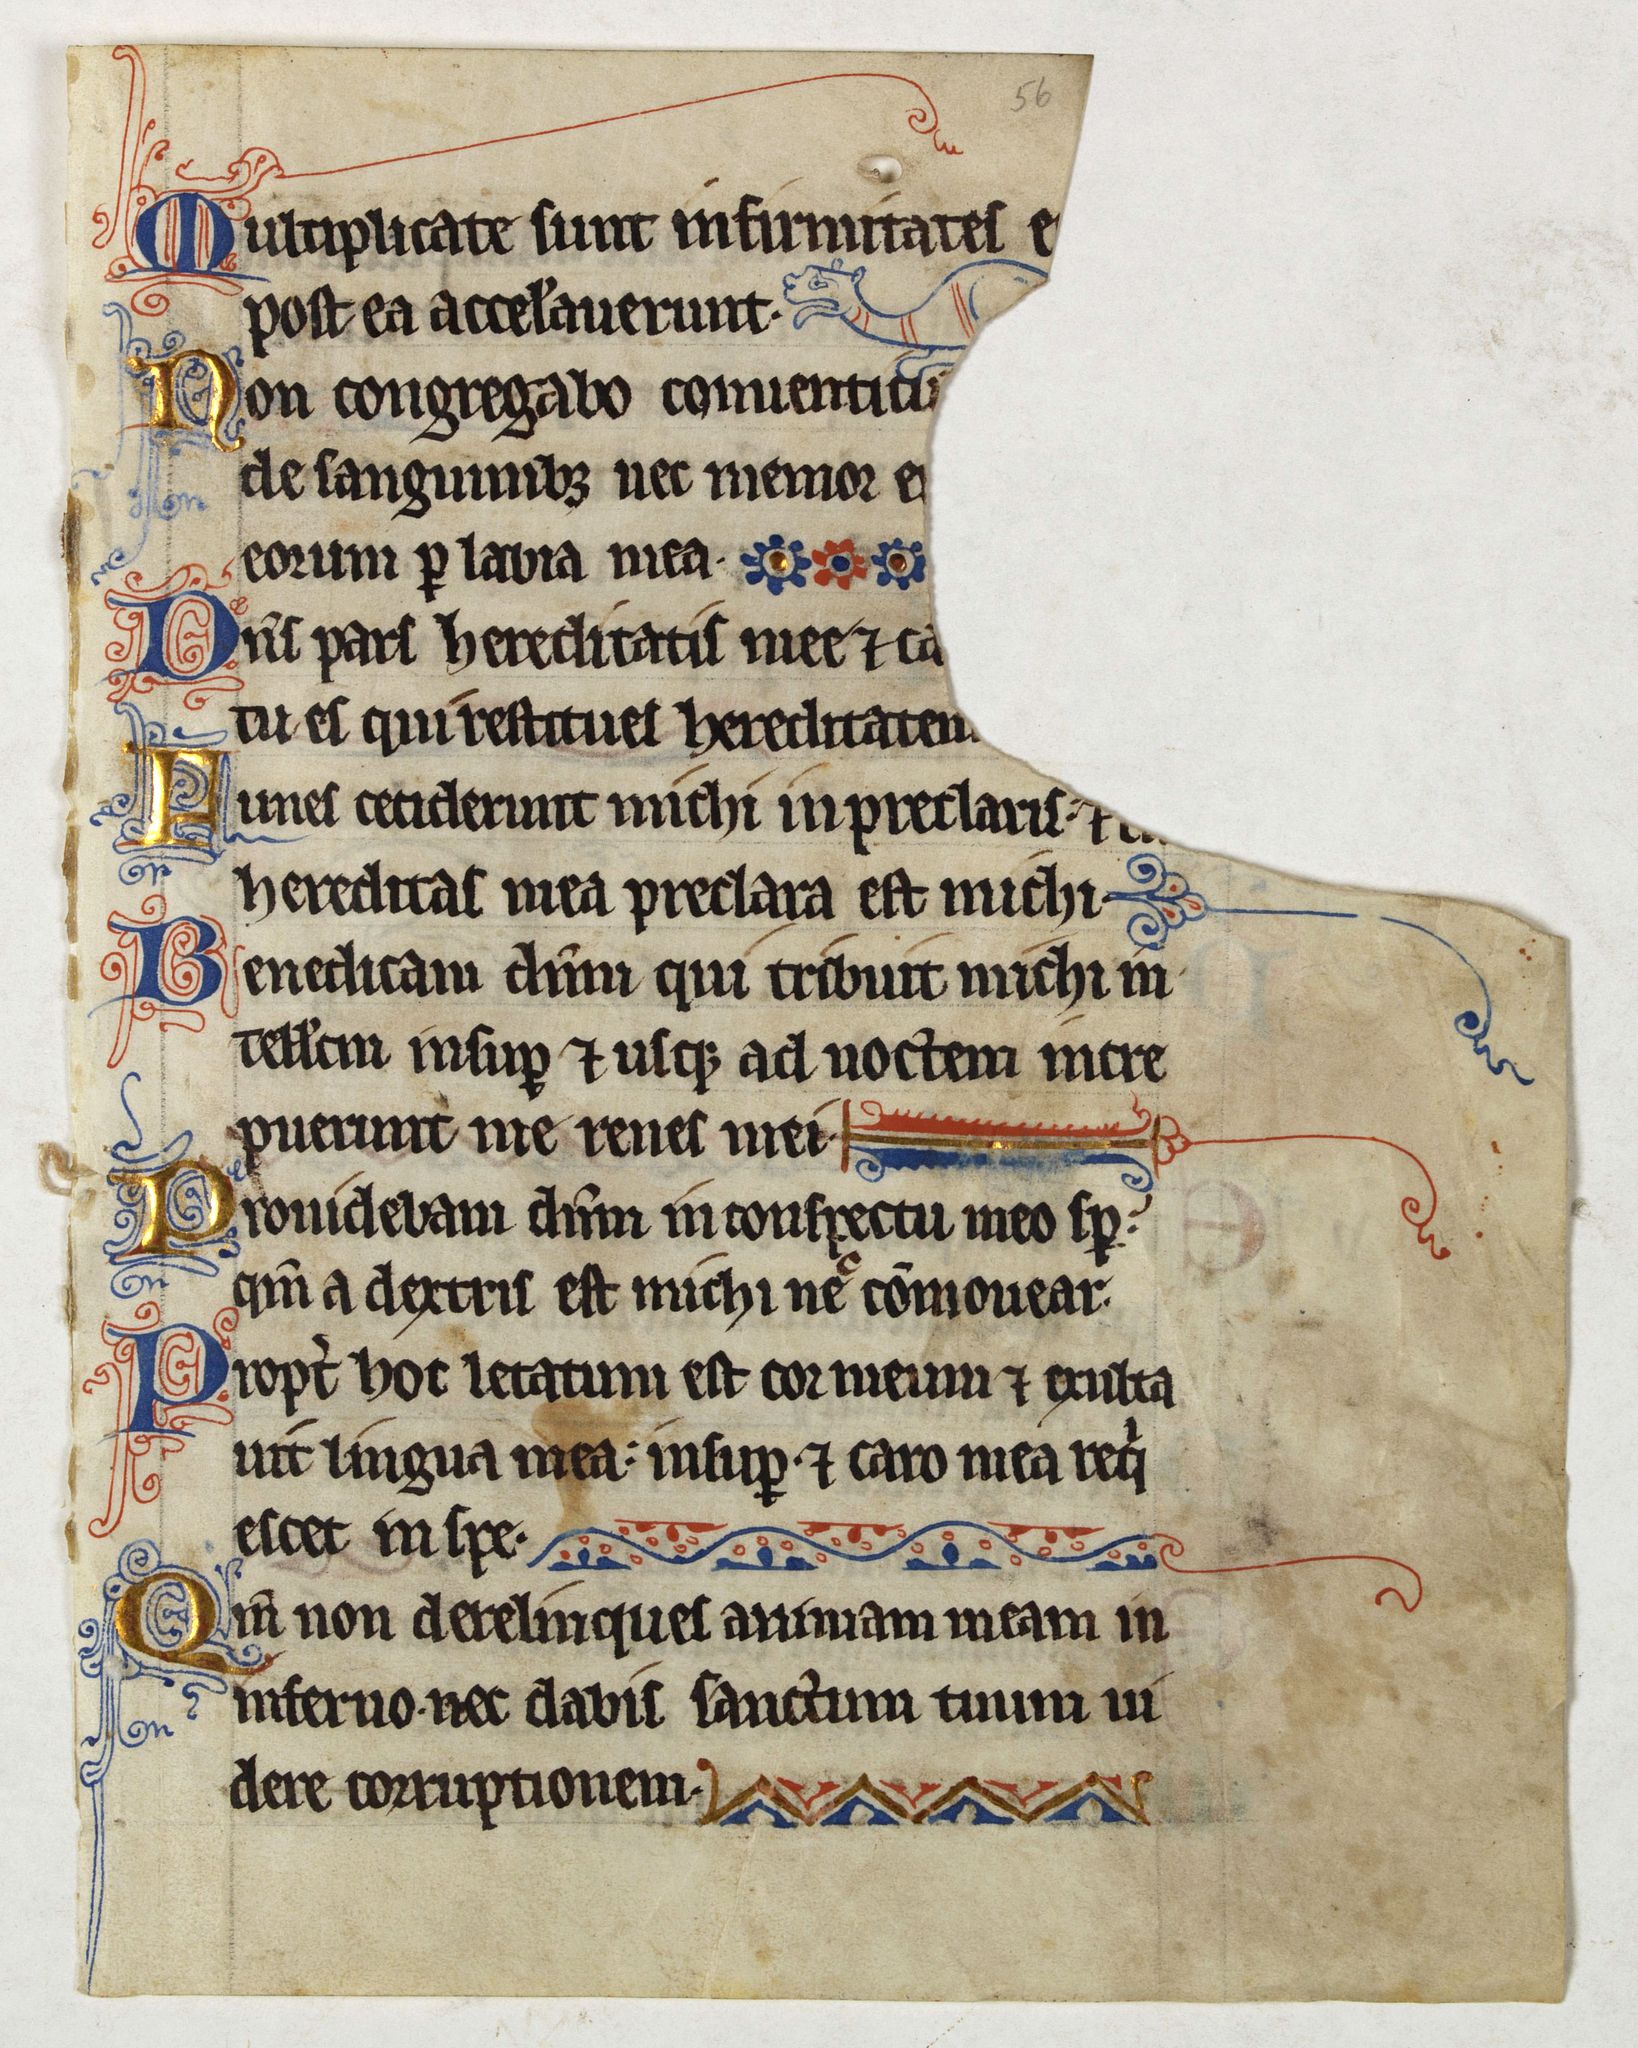 56
Multiplicate sunt infirmitates e
post ea accel'auerunt.
Non congregabo conuenticu
de sanguinibꝫ nec memor e
eorum ꝑ labia mea.
Dn̄s pars hereditatis mee ⁊ ca
tu es qui restitues hereditatem
Funes ceciderunt michi in preclaris: ⁊
hereditas mea preclara est michi.
Benedicam dn̄m qui tribuit michi in
tell'cm insuꝑ ⁊ usqꝫ ad noctem incre
puerunt me renes mei.
Prouidebam dn̄m in conspectu meo sꝑ:
qm̄ a dextris est michi nec cōmouear.
Propt̉ hoc letatum est cor meum ⁊ exulta
uit lingua mea: insuꝑ ⁊ caro mea reqi
escet in spe.
Qm̄ non derelinques animam meam in
inferno. nec dabis sanctum tuum ui
dere corruptionem.